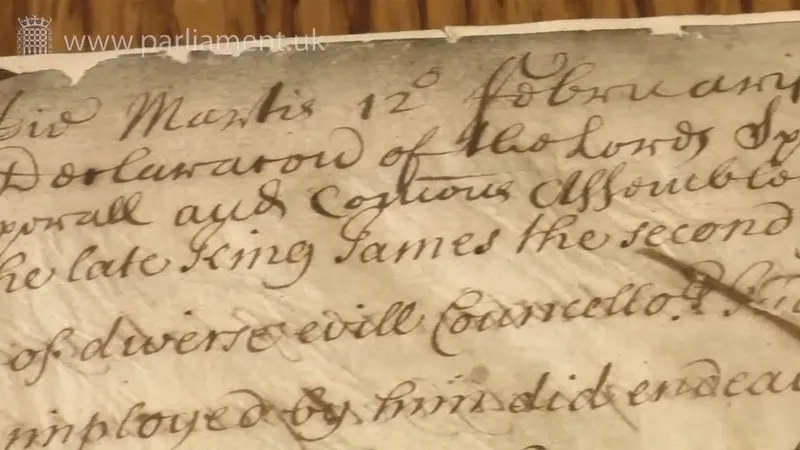 www.parliament.uk
Die Martis 12° Februarii
Declaracon of the Lords Sp
porall and Com̄ons Assemble
he late King James the second
of diverse evill Councello.rs
imployed by him did endeav